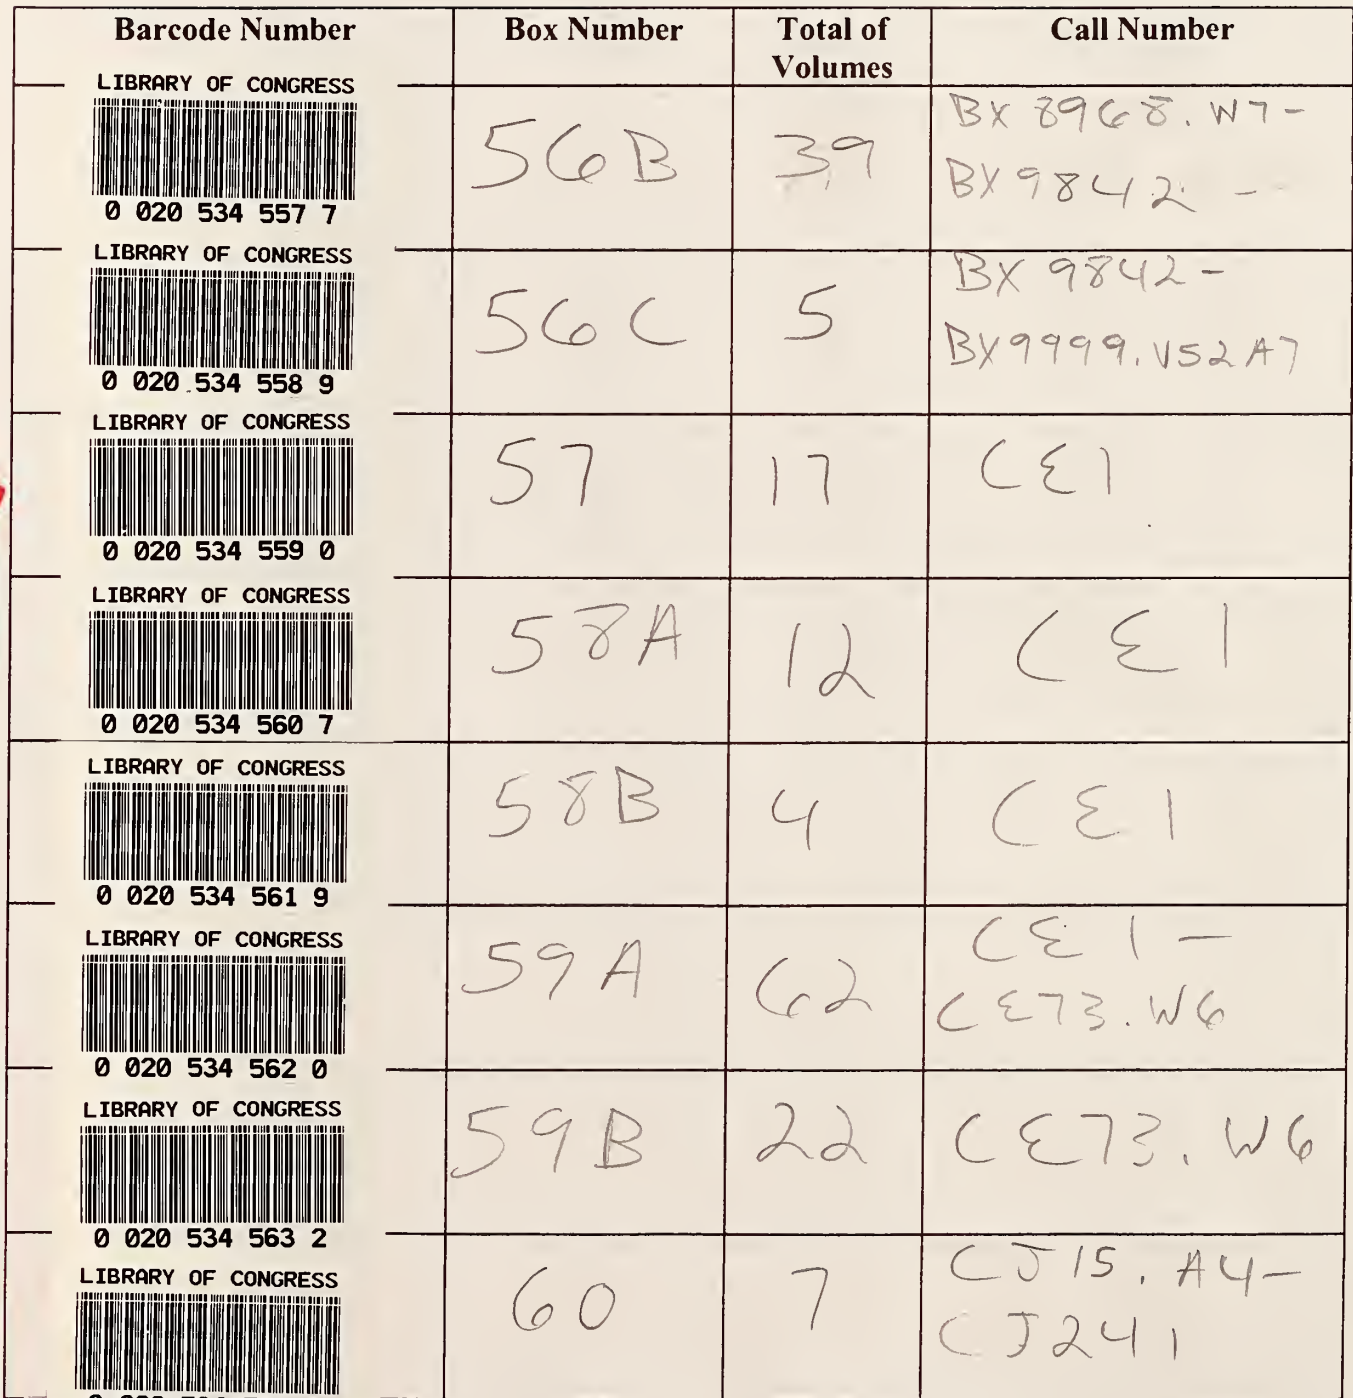 Barcode Number Box Number Total of Volumes Call Number
LIBRARY OF CONGRESS
0 020 534 557 7
56B 39 BX 8968. W7-
BX 9842 -
LIBRARY OF CONGRESS
0 020 534 558 9
56C 5 BX 9842-
BX9999. V52 A7
LIBRARY OF CONGRESS
0 020 534 559 0
57 17 CE1
LIBRARY OF CONGRESS
0 020 534 560 7
58A 12 CE1
LIBRARY OF CONGRESS
0 020 534 561 9
58B 4 CE1
LIBRARY OF CONGRESS
0 020 534 562 0
59A 62 CE1-
CE73. W6
LIBRARY OF CONGRESS
0 020 534 563 2
59B 22 CE73. W6
LIBRARY OF CONGRESS
60 7 CJ15. A4-
CJ241